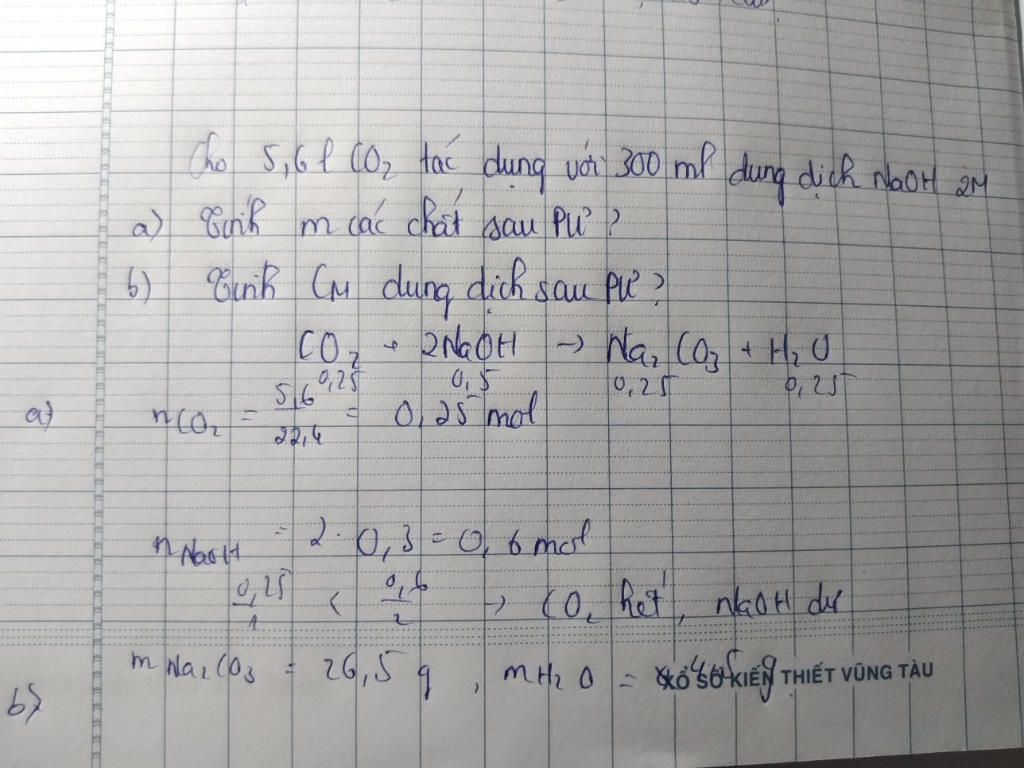 Cho 5,6 l CO2 tác dụng với 300 ml dung dịch NaOH 2M
a) Tính m các chất sau PƯ?
b) Tính CM dung dịch sau PƯ?
CO2 + 2NaOH → Na2CO3 + H2O
0,25 0,5 0,25 0,25
a) nCO2 = 5,6/22,4 = 0,25 mol
nNaOH = 2. 0,3 = 0,6 mol
0,25/1 < 0,6/2 → CO2 hết, NaOH dư
mNa2CO3 = 26,5 g, mH2O = g
XỔ SỐ KIẾN THIẾT VŨNG TÀU
b)